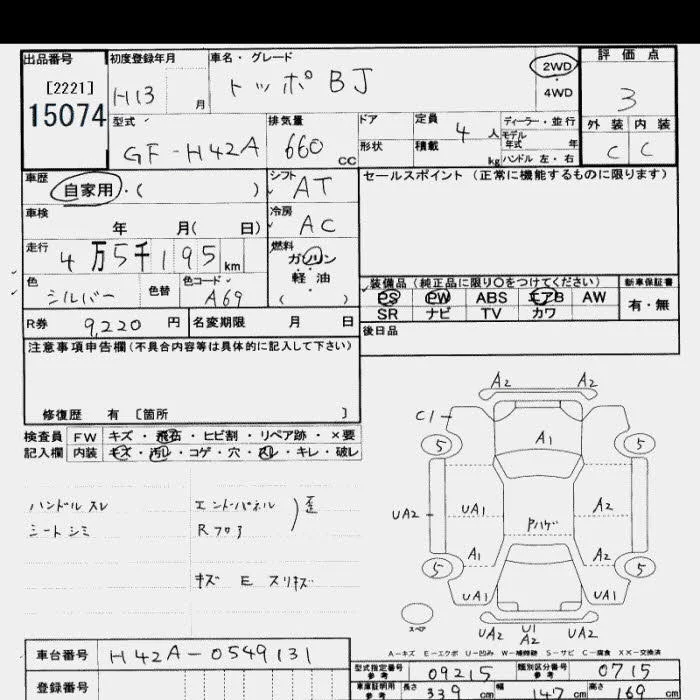 出品番号
[2221]
15074
初度登録年月
H13 月
車名・グレード
トッポBJ
2WD
・
4WD
評価点
3
外装 内装
C C
型式
GF-H42A
排気量
660 CC
ドア
形状
定員
4 人
積載
kg
ディーラー・並行
モデル年式 年
ハンドル 左・右
車歴
自家用・( )
シフト
AT
セールスポイント(正常に機能するものに限ります)
車検
年 月( 日)
冷房
AC
走行
4万5千195 km
燃料
ガソリン
軽・油
( )
色
シルバー
色替
色コード
A69
装備品(純正品に限り○をつけてください)
PS PW ABS エアB AW
SR ナビ TV カワ
新車保証書
有・無
R券 9,220 円
名変期限 月 日
後日品
注意事項申告欄(不具合内容等は具体的に記入して下さい)
修復歴 有 [箇所 ]
検査員
記入欄
FW キズ・飛石・ヒビ割・リペア跡・×要
内装 キズ・汚レ・コゲ・穴・スレ・キレ・破レ
ハンドルスレ
シートシミ
エンドパネル
Rフロア
歪
キズ E スリキズ
A2 A2
C1
5 5
A1
UA2 UA1 A2
Pハゲ
A1 A2
5 5
UA1 UA1
スペア
UA2 U1 UA2
A2
A-キズ E-エクボ U-凹み W-補修跡 S-サビ C-腐食 XX-交換済
車台番号 H42A-0549131
登録番号
型式指定番号
参考
09215
類別区分番号
参考
0715
車庫証明用
参考
長さ 339 cm
幅 147 cm
高さ 169 cm